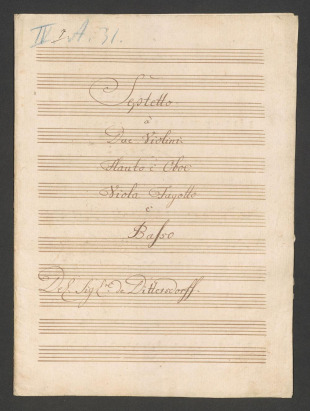 IV A. 31.
Septetto
à
Due Violini
Flauto è Oboe
Viola Fagotto
è
Basso
Del Sig.re de Dittersdorff.